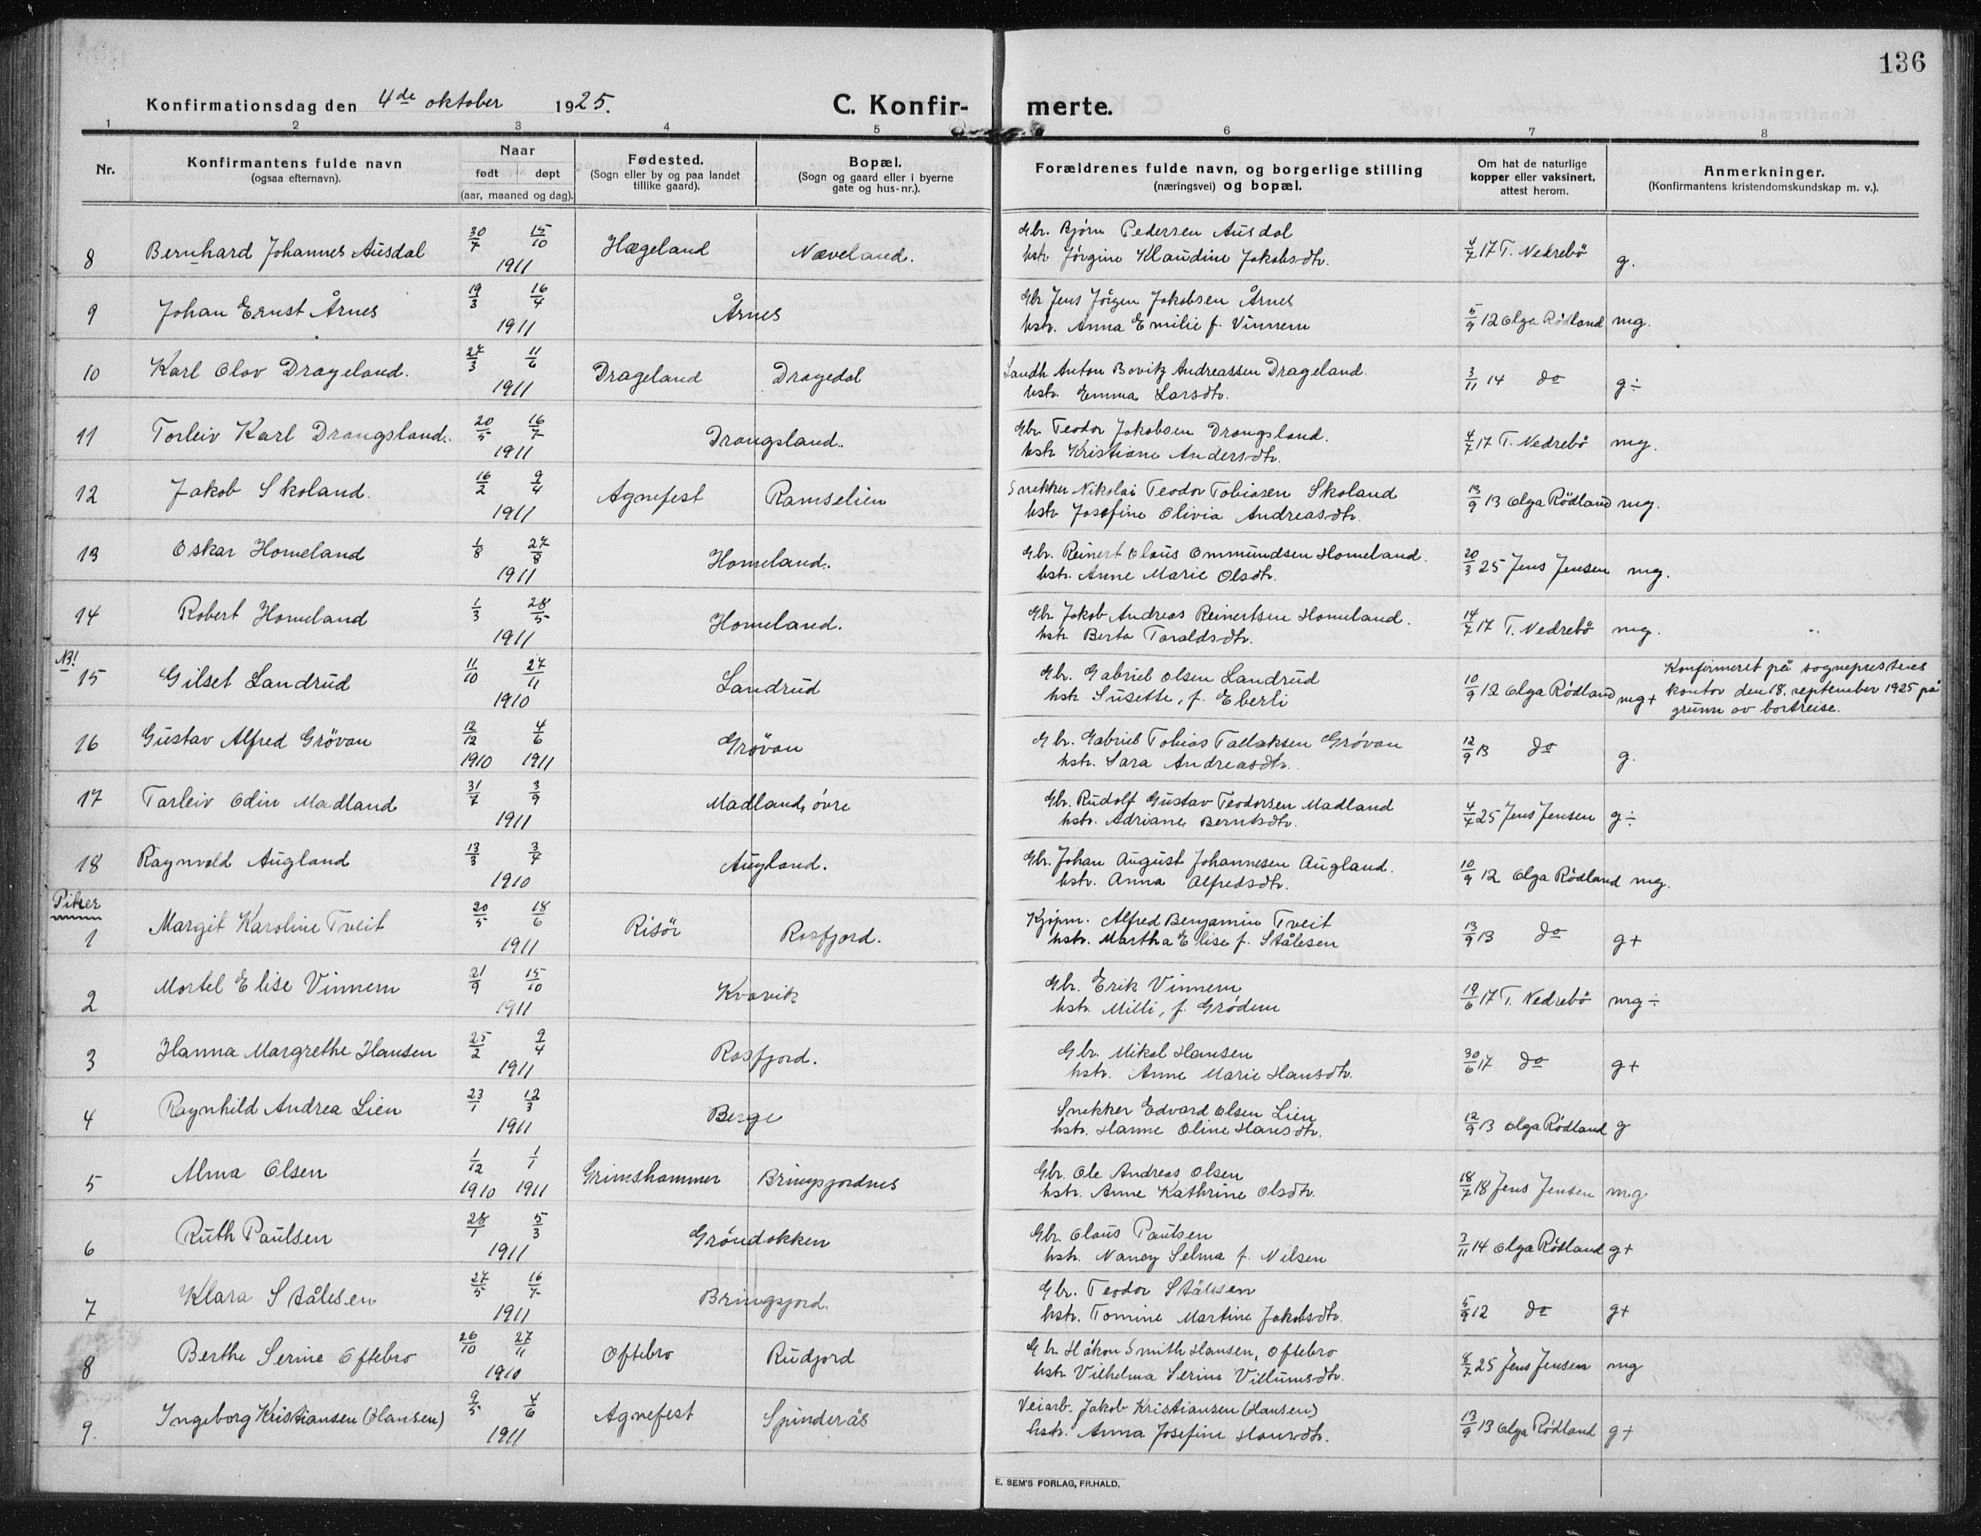 136
Konfirmationsdag den 4de oktober 1925. C. Konfir- merte.
1 2 3 4 5 6 7 8
Nr. Konfirmantens fulde navn (ogsaa efternavn). Naar født døpt (aar, maaned og dag). Fødested. (Sogn eller by og paa landet tillike gaard). Bopæl. (Sogn og gaard eller i byerne gate og hus-nr.). Forældrenes fulde navn, og borgerlige stilling (næringsvei) og bopæl. Om hat de naturlige kopper eller vaksinert, attest herom. Anmerkninger. (Konfirmantens kristendomskundskap m. v.).
8 Bernhard Johannes Ausdal 30/7 15/10 1911 Hægeland Næveland. Gbr. Bjørn Pedersen Ausdal
hstr Jørgine Klaudine Jakobsdtr. 4/7 17 T. Nedrebö g.
9 Johan Ernst Årnes 19/3 16/4 1911 Årnes Gbr Jens Jörgen Jakobsen Årnes
hstr. Anna Emilie f. Vinnem 5/9 12 Olga Rödland mg.
10 Karl Olav Drageland. 27/3 11/6 1911 Drageland Dragedal Landh Anton Bovitz Andreassen Drageland.
hstr. Emma Larsdtr. 3/11 14 do g÷
11 Torleiv Karl Drangsland. 20/5 16/7 1911 Drangsland. Gbr Teodor Jakobsen Drangsland.
hstr Kristiane Andersdtr. 4/7 17 T. Nedrebö mg.
12 Jakob Skoland. 16/2 9/4 1911 Agnefest Ramselien Snekker Nikolai Teodor Tobiasen Skoland
hstr Josefine Olivia Andreasdtr. 13/9 13 Olga Rödland mg.
13 Oskar Homeland 1/8 27/8 1911 Homeland. Gbr. Reinert Olaus Ommundsen Homeland.
hstr. Anne Marie Olsdtr. 20/3 25 Jens Jensen mg.
14 Robert Homeland 1/3 28/5 1911 Homeland. Gbr. Jakob Andreas Reinertsen Homeland.
hstr Berta Taraldsdtr. 14/7 17 T. Nedrebö mg.
NB! 15 Gilset Landrud 11/10 27/11 1910 Landrud Gbr. Gabriel Olsen Landrud
hstr Susette, f. Eberli 10/9 12 Olga Rödland mg+ Konfirmeret på sogneprestens
kontor den 18. september 1925 på
grunn av bortreise.
16 Gustav Alfred Grövan 12/12 1910 4/6 1911 Grövan Gbr. Gabriel Tobias Tallaksen Grövan
hstr. Sara Andreasdtr. 12/9 13 do g.
17 Tarleiv Odin Madland 31/7 3/9 1911 Madland, övre Gbr. Rudolf Gustav Teodorsen Madland
hstr. Adriane Berntsdtr. 4/4 25 Jens Jensen g÷
18 Ragnvald Augland 13/3 3/4 1910 Augland. Gbr. Johan August Johannesen Augland.
hstr. Anna Alfredsdtr. 10/9 12 Olga Rödland mg.
Piker
1 Margit Karoline Tveit 20/5 18/6 1911 Risör Rosfjord. Kjøpm. Alfred Benjamin Tveit
hstr. Martha Elise f. Stålesen 13/9 13 do g+
2 Mortel Elise Vinnem 21/9 15/10 1911 Kvavik Gbr. Erik Vinnem
hstr. Milli, f. Grödem 19/6 17 T. Nedrebö mg÷
3 Hanna Margrethe Hansen 25/2 9/4 1911 Rosfjord. Gbr. Mikal Hansen
hstr. Anne Marie Hansdtr. 30/6 17 do g+
4 Ragnhild Andrea Lien 23/1 12/3 1911 Berge Snekker Edvard Olsen Lien
hstr. Hanne Oline Hansdtr. 12/9 13 Olga Rödland g
5 Alma Olsen 1/12 1910 1/1 1911 Grimshammer Bringsjordnes Gbr. Ole Andreas Olsen
hstr. Anne Kathrine Olsdtr. 18/7 18 Jens Jensen mg
6 Ruth Paulsen 28/1 5/3 1911 Gröndokken Gbr. Olaus Paulsen
hstr. Nancy Selma f. Nilsen 3/11 14 Olga Rödland g+
7 Klara Stålesen 27/5 16/7 1911 Bringsjord. Gbr. Teodor Stålesen
hstr. Tomine Martine Jakobsdtr. 5/9 12 do g+
8 Berthe Serine Oftebro 26/10 27/11 1910 Oftebro Rudjord Gbr Håkon Smith Hansen, Oftebro
hstr Vilhelma Serine Villumsdtr. 8/7 25 Jens Jensen mg
9. Ingeborg Kristiansen (Hansen) 9/5 4/6 1911 Agnefest Spinderås Veiarb. Jakob Kristiansen (Hansen)
hstr. Anna Josefine Hansdtr. 13/9 13 Olga Rödland g+
E. SEM'S FORLAG, FR.HALD.